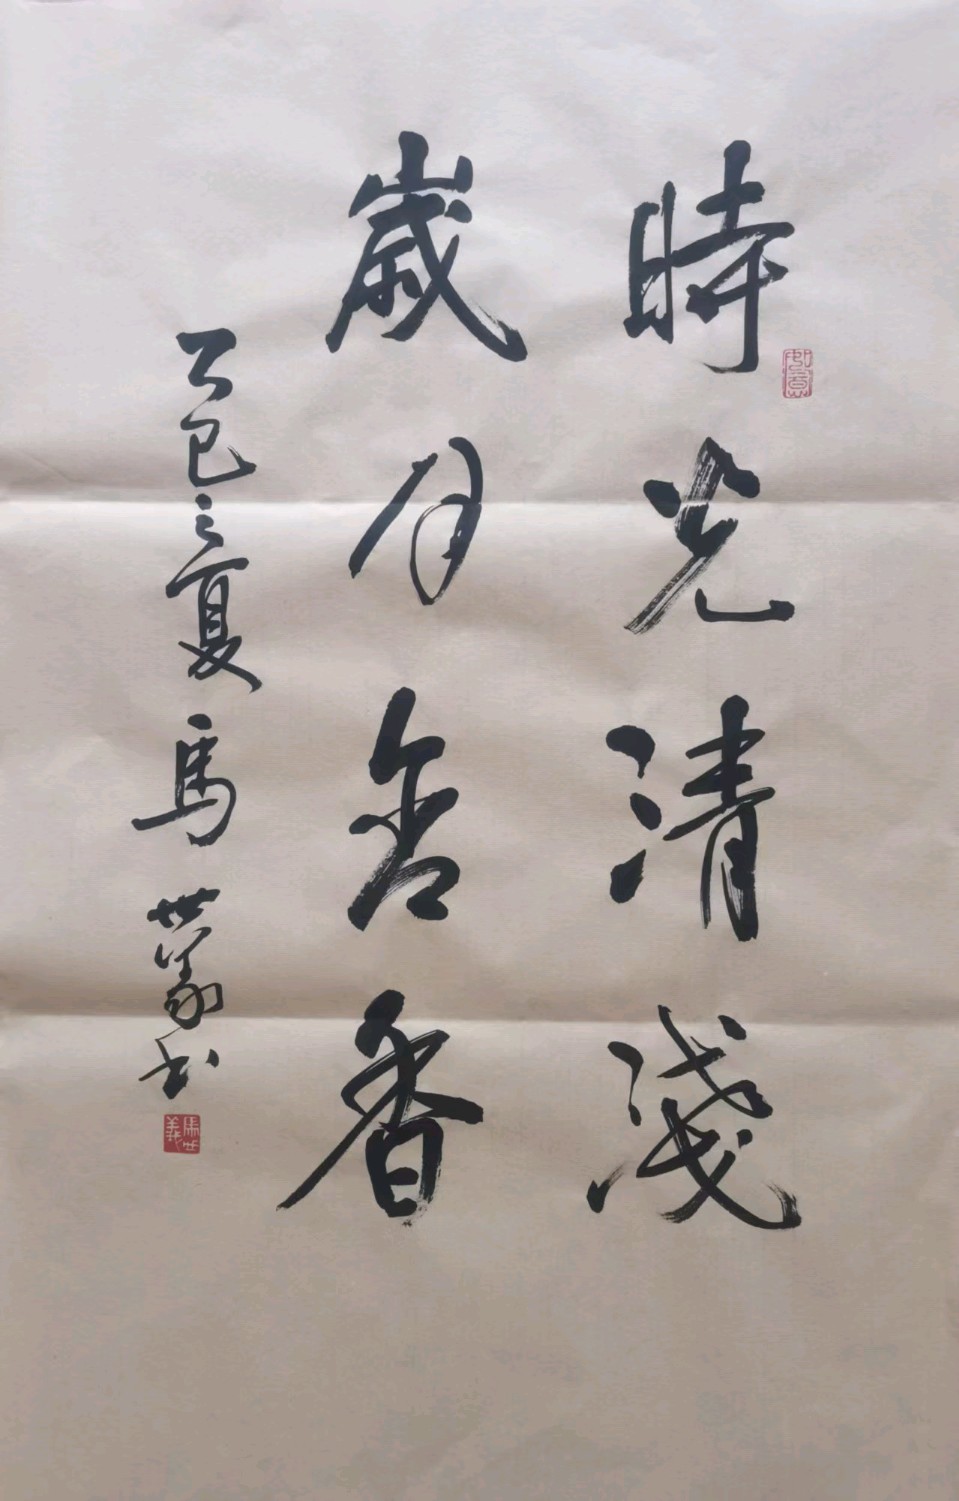 時光清淺
歲月含香
乙巳之夏馬世義书
馬世義